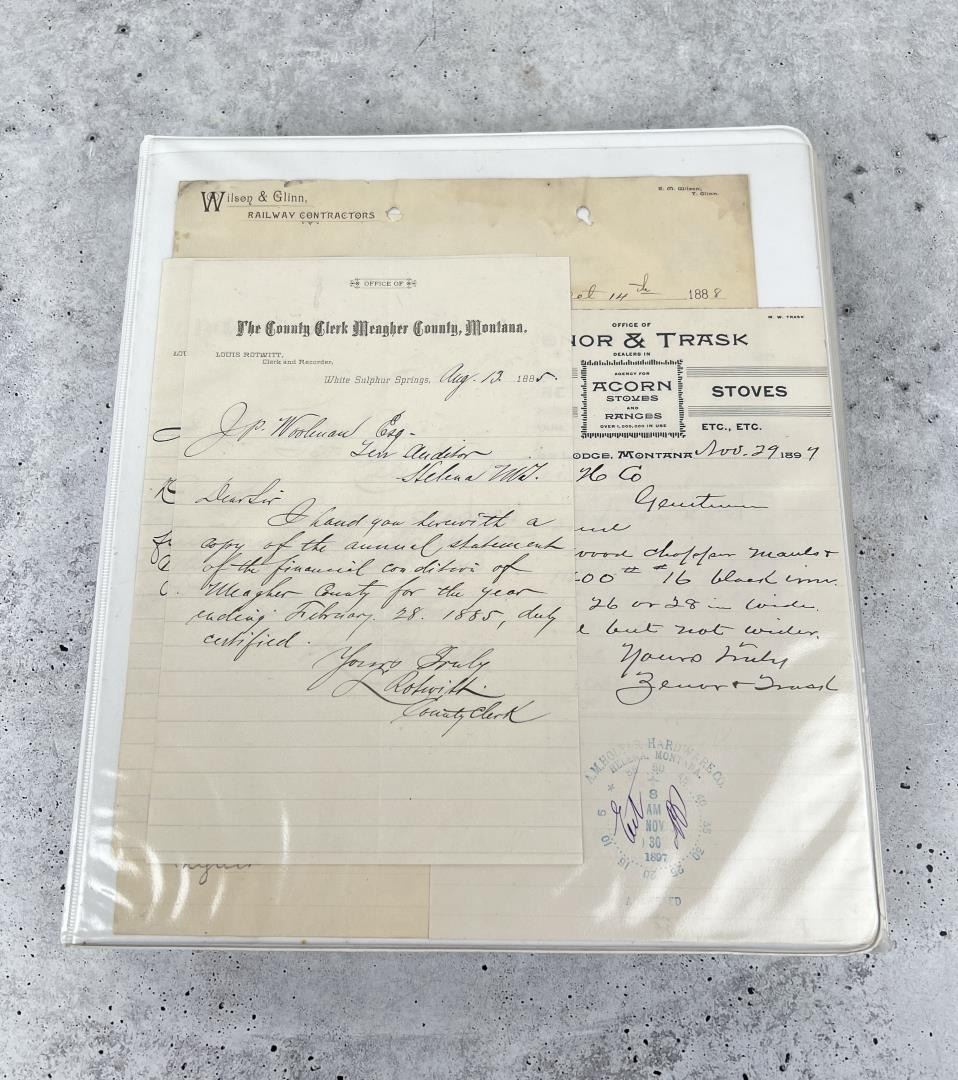 Wilson & Glinn,
RAILWAY CONTRACTORS
S. M. Wilson,
T. Glinn.
14th 1888
OFFICE OF
The County Clerk Meagher County, Montana.
LOUIS ROTWITT,
Clerk and Recorder,
White Sulphur Springs, Aug. 13. 1885.
J. P. Woolman Esq-
Terr Auditor
Helena M.T.
Dear Sir
I hand you herewith a
copy of the annual statement
of the financial condition of
Meagher County for the year
ending February 28. 1885, duly
certified.
Yours Truly
L Rotwitt.
County Clerk
M. W. TRASK
OFFICE OF
NOR & TRASK
DEALERS IN
AGENCY FOR
ACORN
STOVES
AND
RANGES
OVER 1,000,000 IN USE
STOVES
ETC., ETC.
ODGE, MONTANA Nov. 29 1897
H Co
Gentlemen
wood chopper mauls &
00 # # 16 black iron
26 or 28 in wide.
but not wider.
Yours Truly
Zenor & Trask
A.M. HOLTER HARDWARE CO.
HELENA, MONTANA.
8
AM
NOV
30
1897